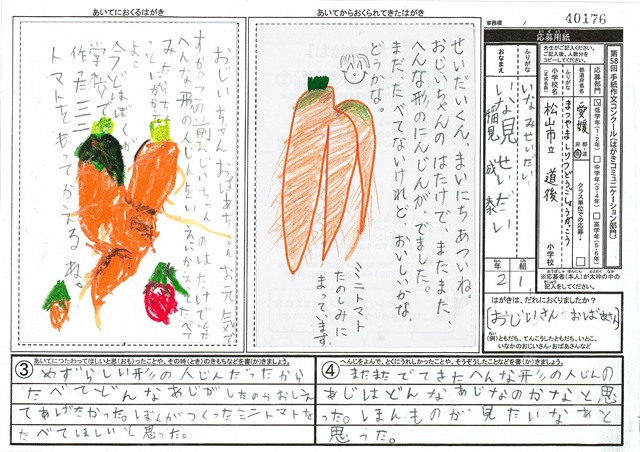 事務欄 / 40176
応募用紙
先生がご記入ください。
ご記入後、人数分を
コピーしてください。
第58回 手紙作文コンクール(はがきコミュニケーション部門)
応募部門
低学年(1・2年)
中学年(3・4年)
高学年(5・6年)
都道府県名
愛媛
都 道
府 県
クラス単位での応募
ふりがな
まつやましりつどうごしょうがっこう
小学校名
(正式名称)
松山市立 道後
小学校
ふりがな
いなみせいだい
おなまえ
いな見せいだい
稲見 成泰
年 2
組 1
※応募者(本人)が太枠の中の
記入をしてください。
はがきは、だれにおくりましたか?
おじいさん おばあさん
(例)ともだち、てんこうしたともだち、いとこ、
いなかのおじいさん・おばあさんなど
あいてからおくられてきたはがき
せいだいくん、まいにちあついね。
おじいちゃんのはたけで、またまた、
へんな形のにんじんが、でました。
まだ、たべてないけれど、おいしいかな、
どうかな。
ミニトマト
たのしみに
まっています
あいてにおくるはがき
おじいちゃんおばあちゃんお元気で
すか。この前おじいちゃんのはたけで
へんな形の人じん
よ。
今ど
学校で
作ったミニ
トマトをもってかえるね。
③ あいてにつたわってほしいと思(おも)ったことや、その時(とき)のきもちなどを書(か)きましょう。
めずらしい形の人じんだったから
たべてどんなあじがしたのかおしえ
てあげたかった。ぼくがつくったミニトマトを
たべてほしいと思った。
④ へんじをよんで、とくにうれしかったことや、そうぞうしたことなどを書(か)きましょう。
またまたでてきたへんな形の人じんの
あじはどんなあじなのかなと思
った。じまんものが見たいなあと
思った。